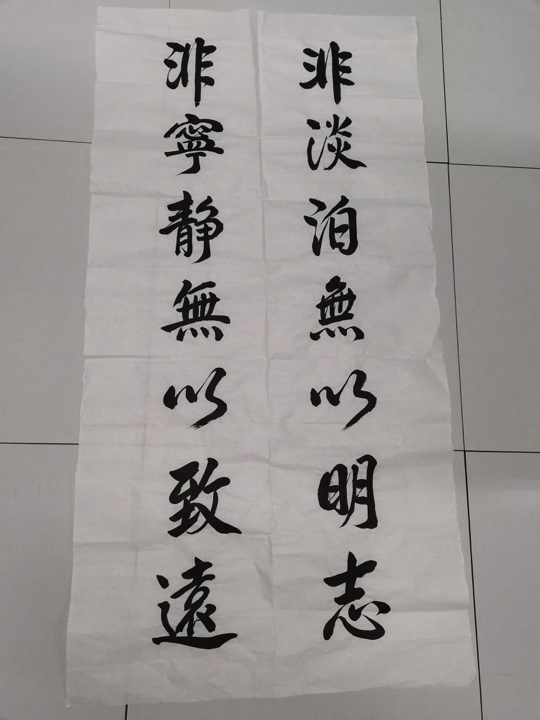 非淡泊無以明志
非寧静無以致遠